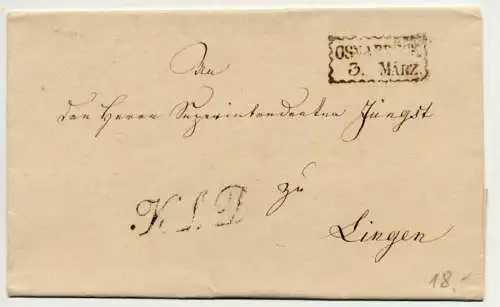 OSNABRÜCK
3. MÄRZ.
An
den Herrn Superintendenten Jüngst
zu
Lingen
18.-